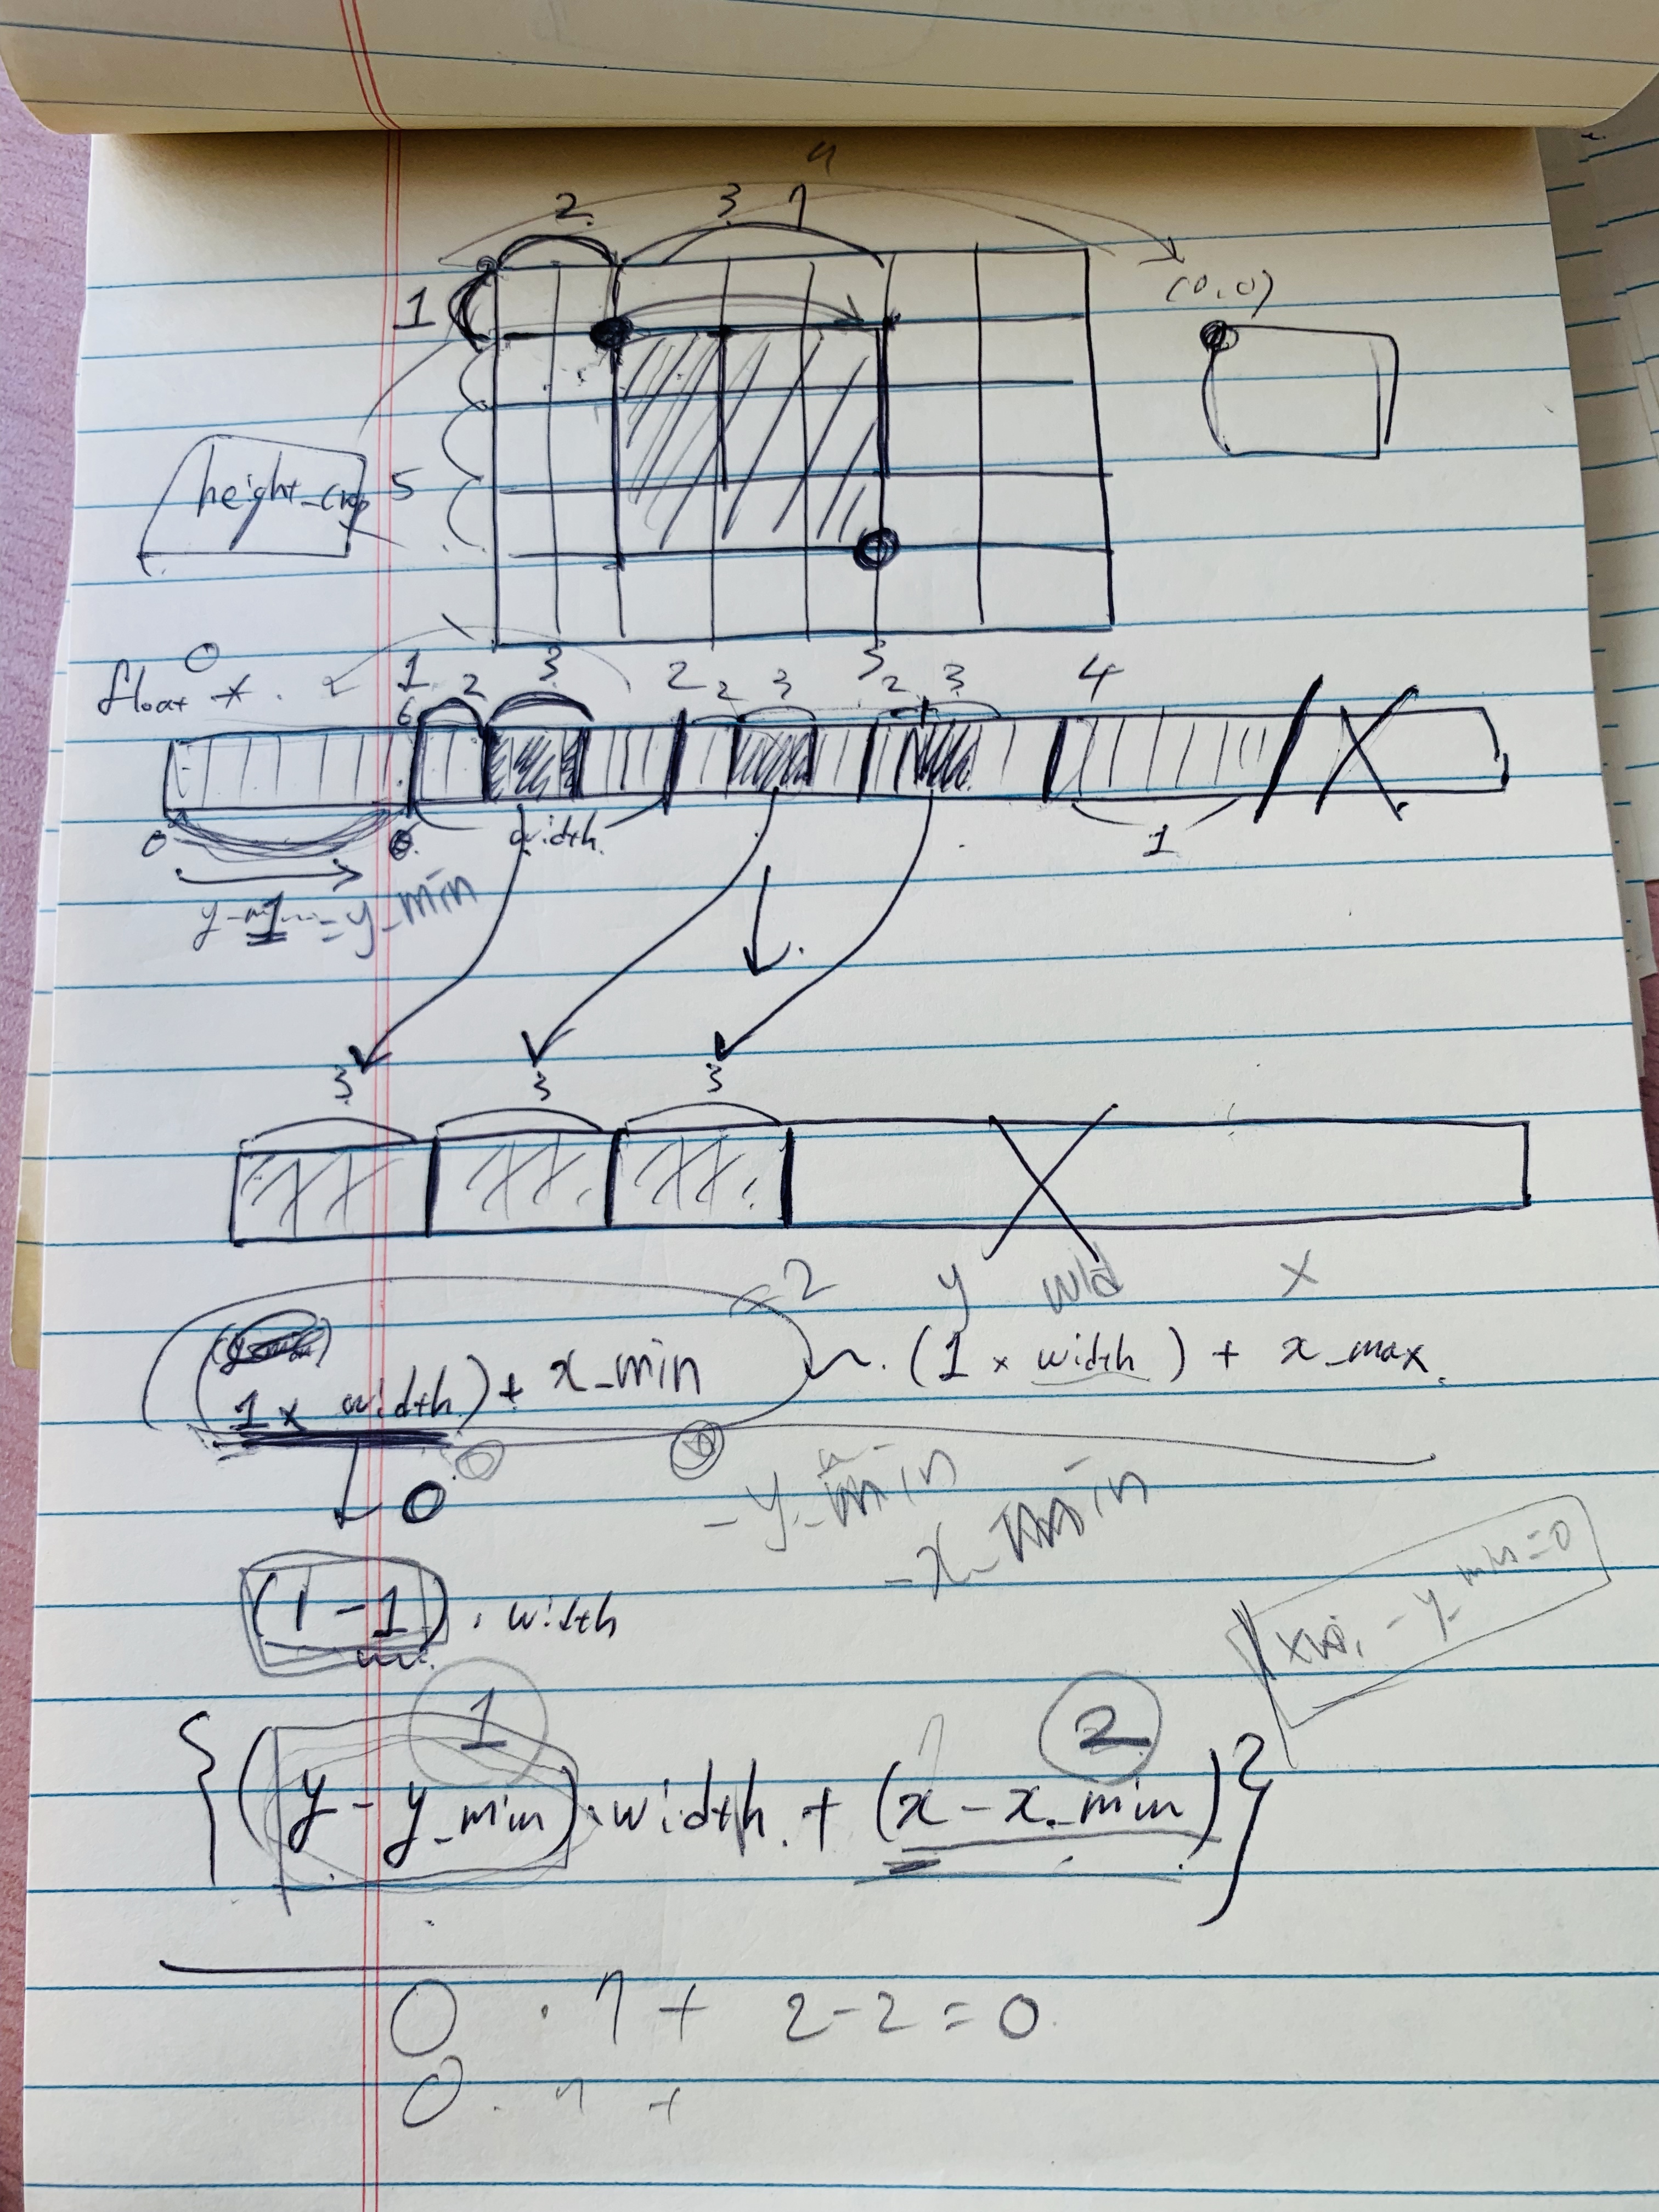 2 3 7
1 (0,0)
height_crop 5
0 1 3 2 3 4
float * 2 2 3 2 3
6
0 width 1
y_min
1 = y_min
3 3 3
2 y wid x
(1 x width) + x_min ~ (1 x width) + x_max
0 - y_min
- x_min
(1 - 1) · width
- y_min = 0
1 2
{(y - y_min) · width + (x - x_min)}
0 · 7 + 2 - 2 = 0
0 · 7 +